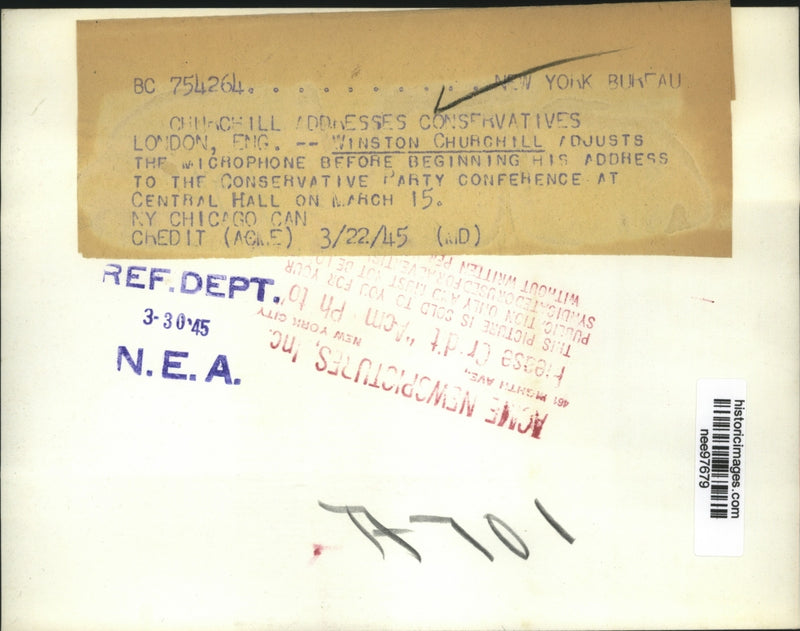 BC 754264. . . . . . . . . . . NEW YORK BUREAU
CHURCHILL ADDRESSES CONSERVATIVES
LONDON, ENG. -- WINSTON CHURCHILL ADJUSTS
THE MICROPHONE BEFORE BEGINNING HIS ADDRESS
TO THE CONSERVATIVE PARTY CONFERENCE AT
CENTRAL HALL ON MARCH 15.
NY CHICAGO CAN
CREDIT (ACME) 3/22/45 (MD)
REF. DEPT.
3-30'45
N.E.A.
ACME NEWSPICTURES, Inc.
461 EIGHTH AVE., NEW YORK CITY
Please
THIS PICTURE IS SOLD TO YOU FOR YOUR
ONLY AND MUST NOT BE
WITHOUT WRITTEN
A-701
historicimages.com
nee97679